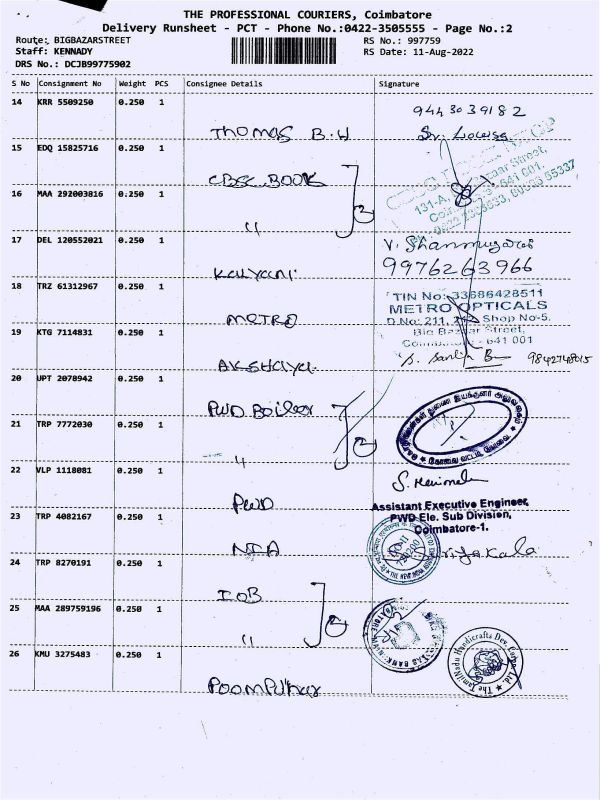 THE PROFESSIONAL COURIERS, Coimbatore
Delivery Runsheet - PCT - Phone No.:0422-3505555 - Page No.:2
Route: BIGBAZARSTREET
RS No.: 997759
Staff: KENNADY
RS Date: 11-Aug-2022
DRS No.: DCJB99775902
S No Consignment No Weight PCS Consignee Details Signature
14 KRR 5509250 0.250 1
9443039182
Thomas B.W
15 EDQ 15825716 0.250 1
CBSC BOOK
131-A,
16 MAA 292003816 0.250 1
" 2
17 DEL 120552021 0.250 1
V. Shanmugaraj
Kalyani
9976263966
18 TRZ 61312967 0.250 1
TIN No: 33686428511
METRO OPTICALS
METRO
D.No: 211, Shop No-5.
Big Bazaar Street,
Coimbatore - 641 001
19 KTG 7114831 0.250 1
9842748015
Akshaya
20 UPT 2078942 0.250 1
PWD Boiler
21 TRP 7772030 0.250 1
" 2
22 VLP 1118081 0.250 1
PWD
Assistant Executive Engineer,
PWD Ele. Sub Division,
Coimbatore-1.
23 TRP 4082167 0.250 1
NIA
24 TRP 8270191 0.250 1
IOB
25 MAA 289759196 0.250 1
" 2
26 KMU 3275483 0.250 1
The Tamil Nadu Handicrafts Dev. Corpn. Ltd.
Poompuhar